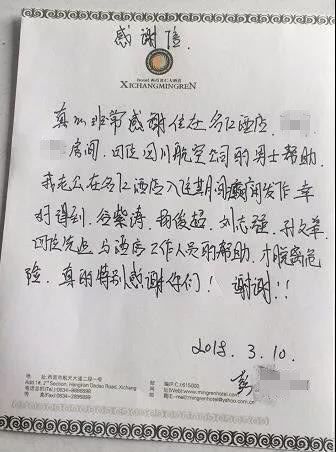 感谢信
hotel 西昌名仁大酒店
XICHANGMINGREN
真的非常感谢住在名仁酒店
房间,四位四川航空公司的男士帮助,
我老公在名仁酒店入住期间癫痫发作,幸
好得到,谷紫涛、杨俊超、刘志强、孙文华
四位先生与酒店工作人员的帮助,才脱离危
险。真的特别感谢你们!谢谢!!
2018.3.10.
彭
地 址:西昌市航天大道二段一号
Section, Hangtian Dadao Road, Xichang
编P.C.:615000
Web:www.mingrenhotel.com
E-mail:mingrenhotel@yahoo.com.cn